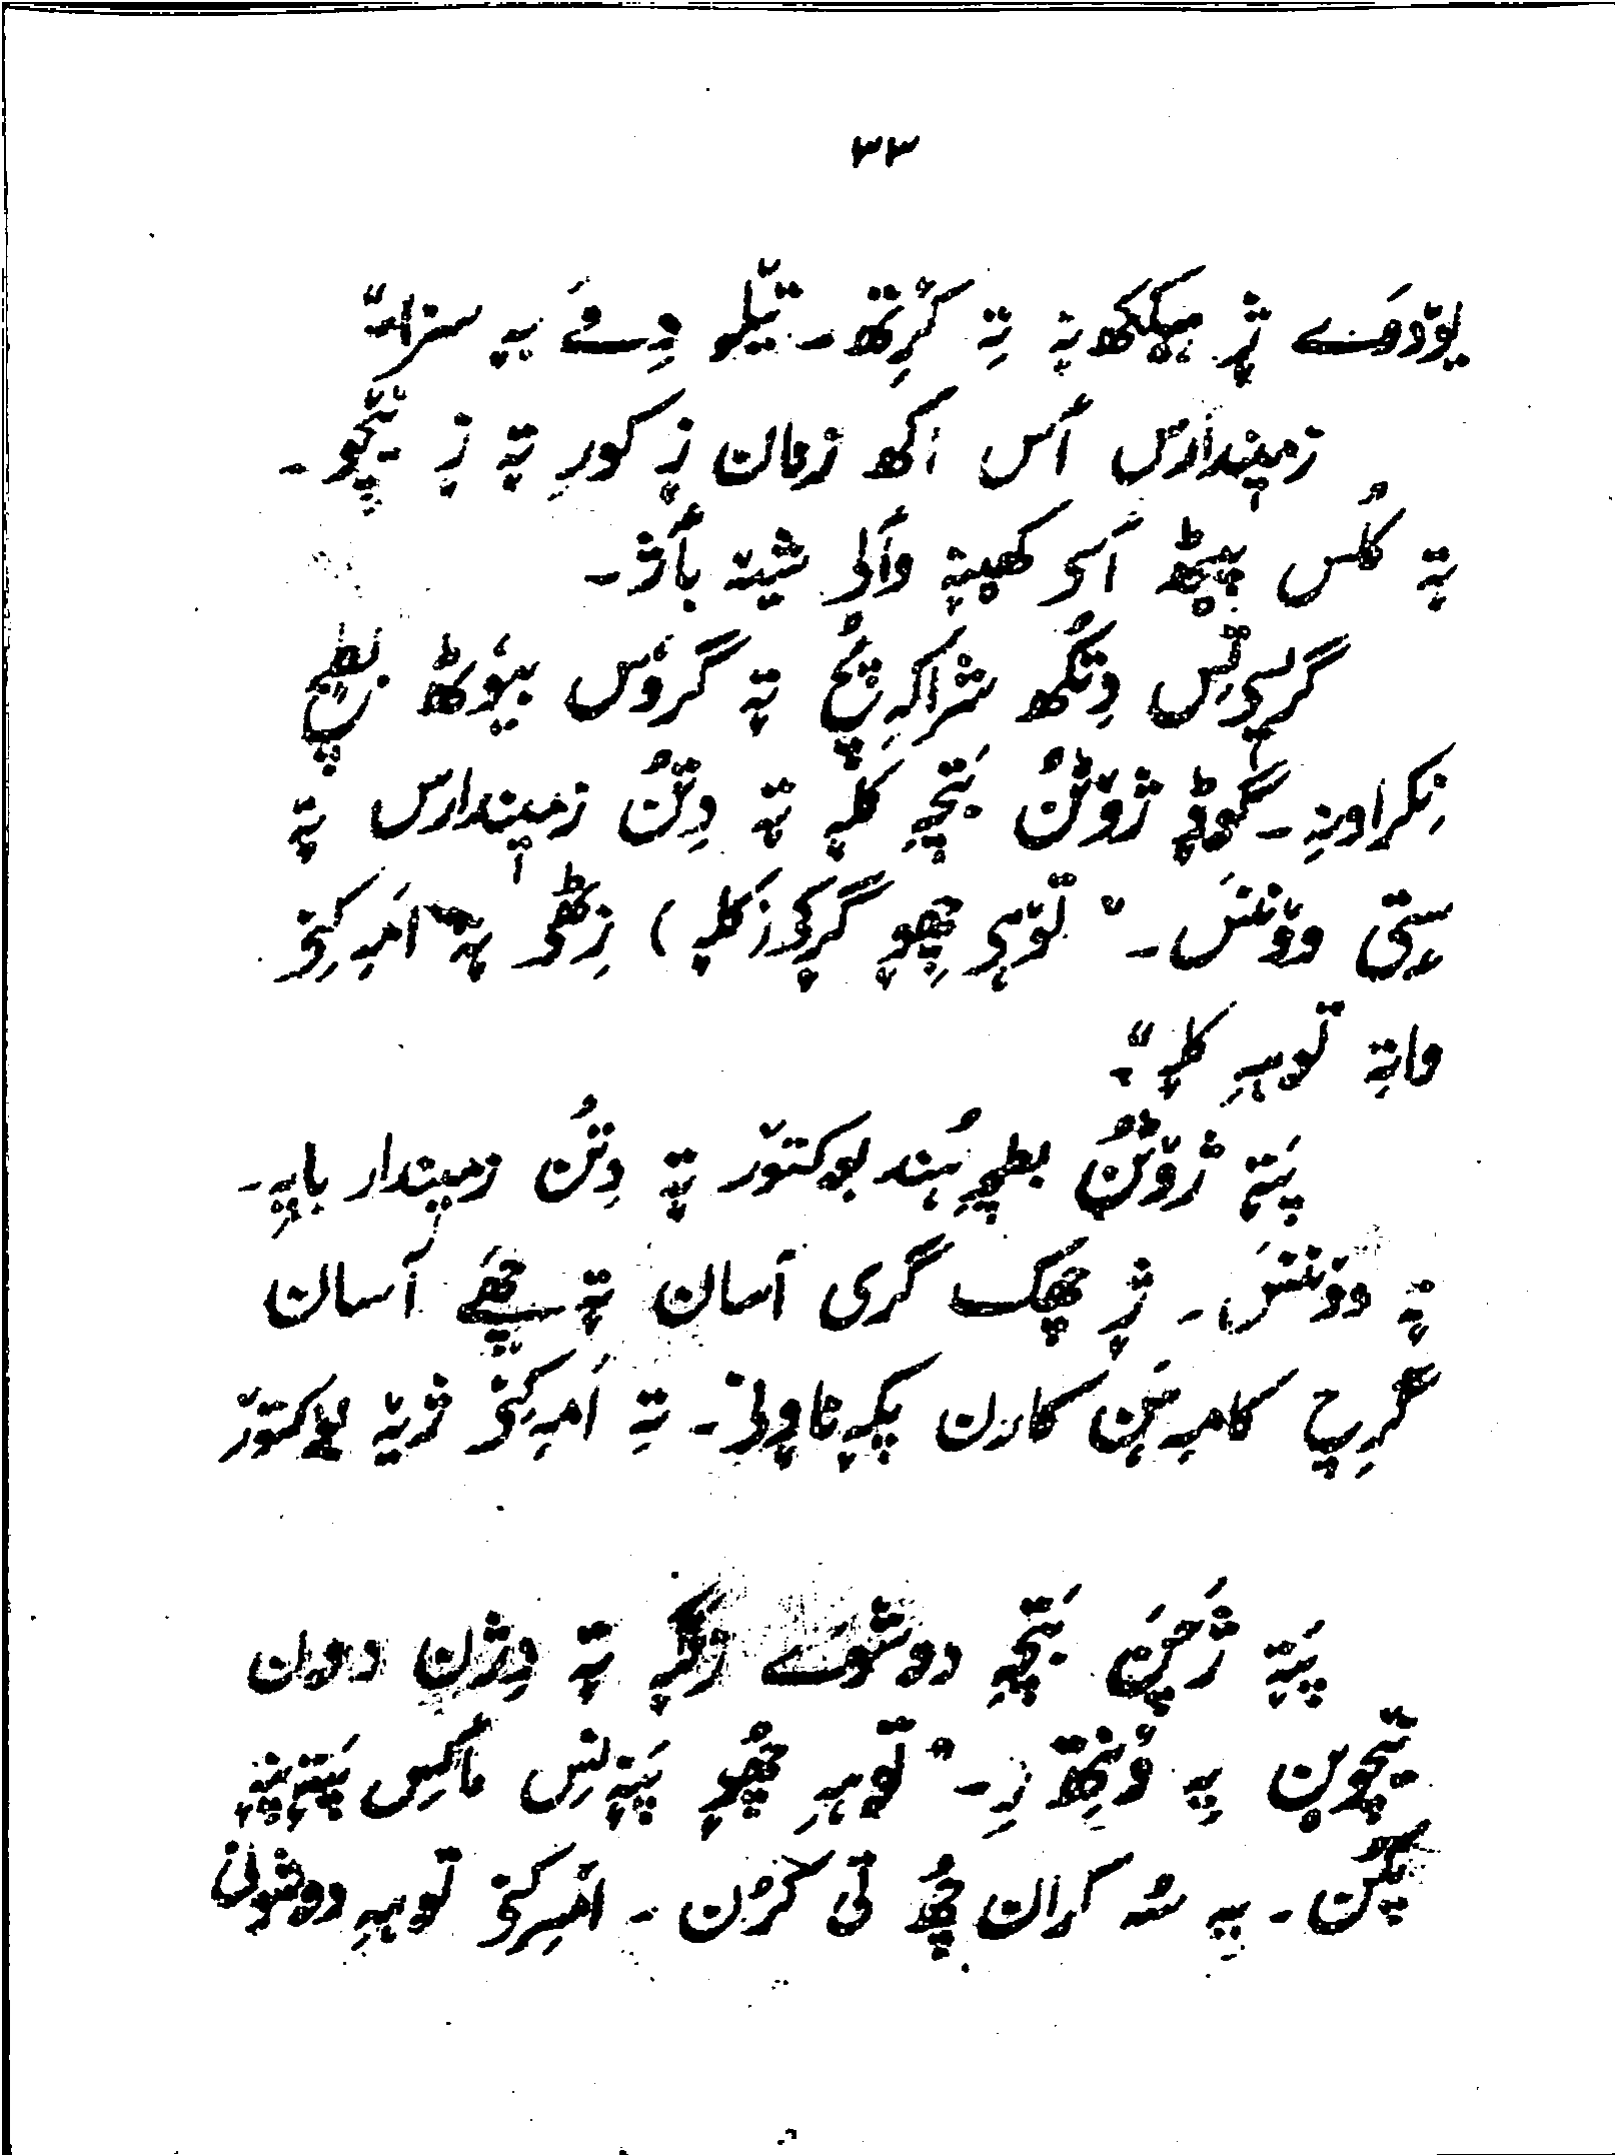 ۳۳
یوٚدوَے ژٕ ہیککھ نہٕ تہِ کٔرِتھ۔ تیٚلہِ دِمے بہٕ سزا۔"
زمیٖندارس ٲس اکھ زنان زٕ کورِ تہٕ زٕ نیٚچوِ۔
تہٕ کلُس پیٹھ ٲسۍ کھینہٕ والۍ شیہٕ بٲژ۔
گریسۍ تِس دِتُکھ شراکہِ پُچ تہٕ گروٚس بیوٚٹھ بطٕچ
نِکراونہِ۔ گوڈٕ ژوٚٹُن بَتچہِ کلہٕ تہٕ دِتُن زمیٖندارس تہٕ
سٟتۍ ووٚننس۔ "توٚہۍ چھِوٕ گرِکۍ (کلہٕ) زِٹھۍ تہٕ امہِ کِنۍ
واتہِ توہہِ کلہٕ"۔
پَتہٕ ژوٚٹُن بطٕچہِ ہُند بوکتوٚر تہٕ دِتُن زمیندار بایہِ۔
تہٕ ووٚننس۔ ژٕ چھکھ گری آسان تہٕ چھَے آسان
گرٕچ کامہِ تہٕ کارن پکہٕ ناونۍ۔ تہِ امہِ کِنۍ ژےٚ یہٕ بوکتوٚر
پَتہٕ ژَچن بَتچہِ دوشوَے زنگہٕ تہٕ دِژن دون
نیٚچوِین یہِ ؤنِتھ زِ۔ "توٚہہِ چھُوٕ پَننِس مٲلِس پَتہٕ پَتہٕ
پکُن۔ یہِ سُہ کران چھُ تی کرُن۔ امہِ کِنۍ توہہِ دوشونۍ